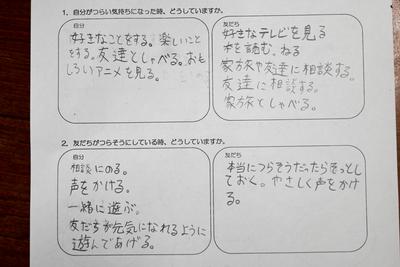 1. 自分がつらい気持ちになった時、どうしていますか。
自分
好きなことをする。楽しいこと
をする。友達としゃべる。おも
しろいアニメを見る。
友だち
好きなテレビを見る
本を読む、ねる
家族や友達に相談する。
友達に相談する。
家族としゃべる。
2. 友だちがつらそうにしている時、どうしていますか。
自分
相談にのる。
声をかける。
一緒に遊ぶ。
友だちが元気になれるように
遊んであげる。
友だち
本当につらそうだったらそっとし
ておく。やさしく声をかけ
る。